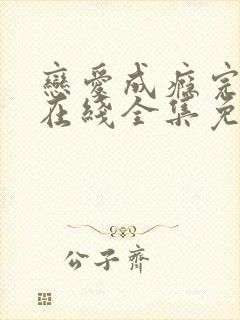 戀愛成癮完
在綫全集免
公子齊